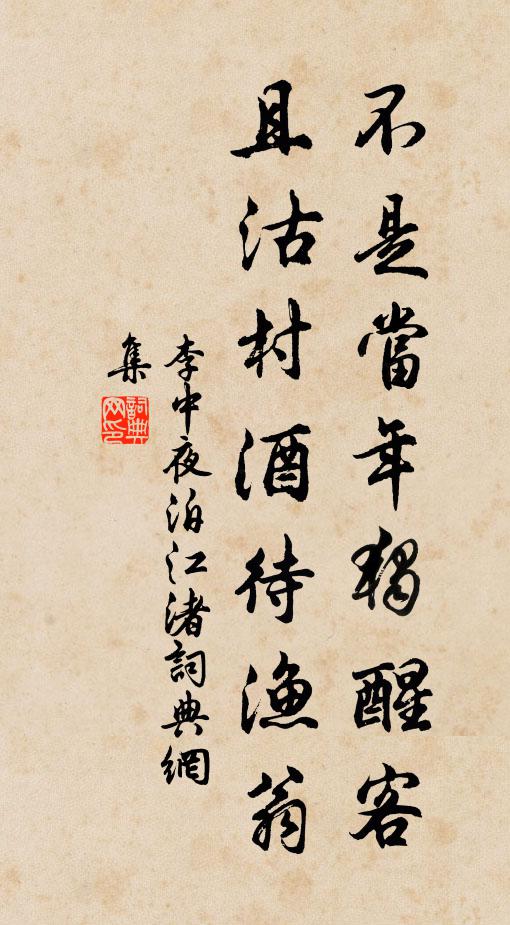 不是當年獨醒客
且沽村酒待漁翁
李中夜泊江渚詞典網
集
詞典
网印